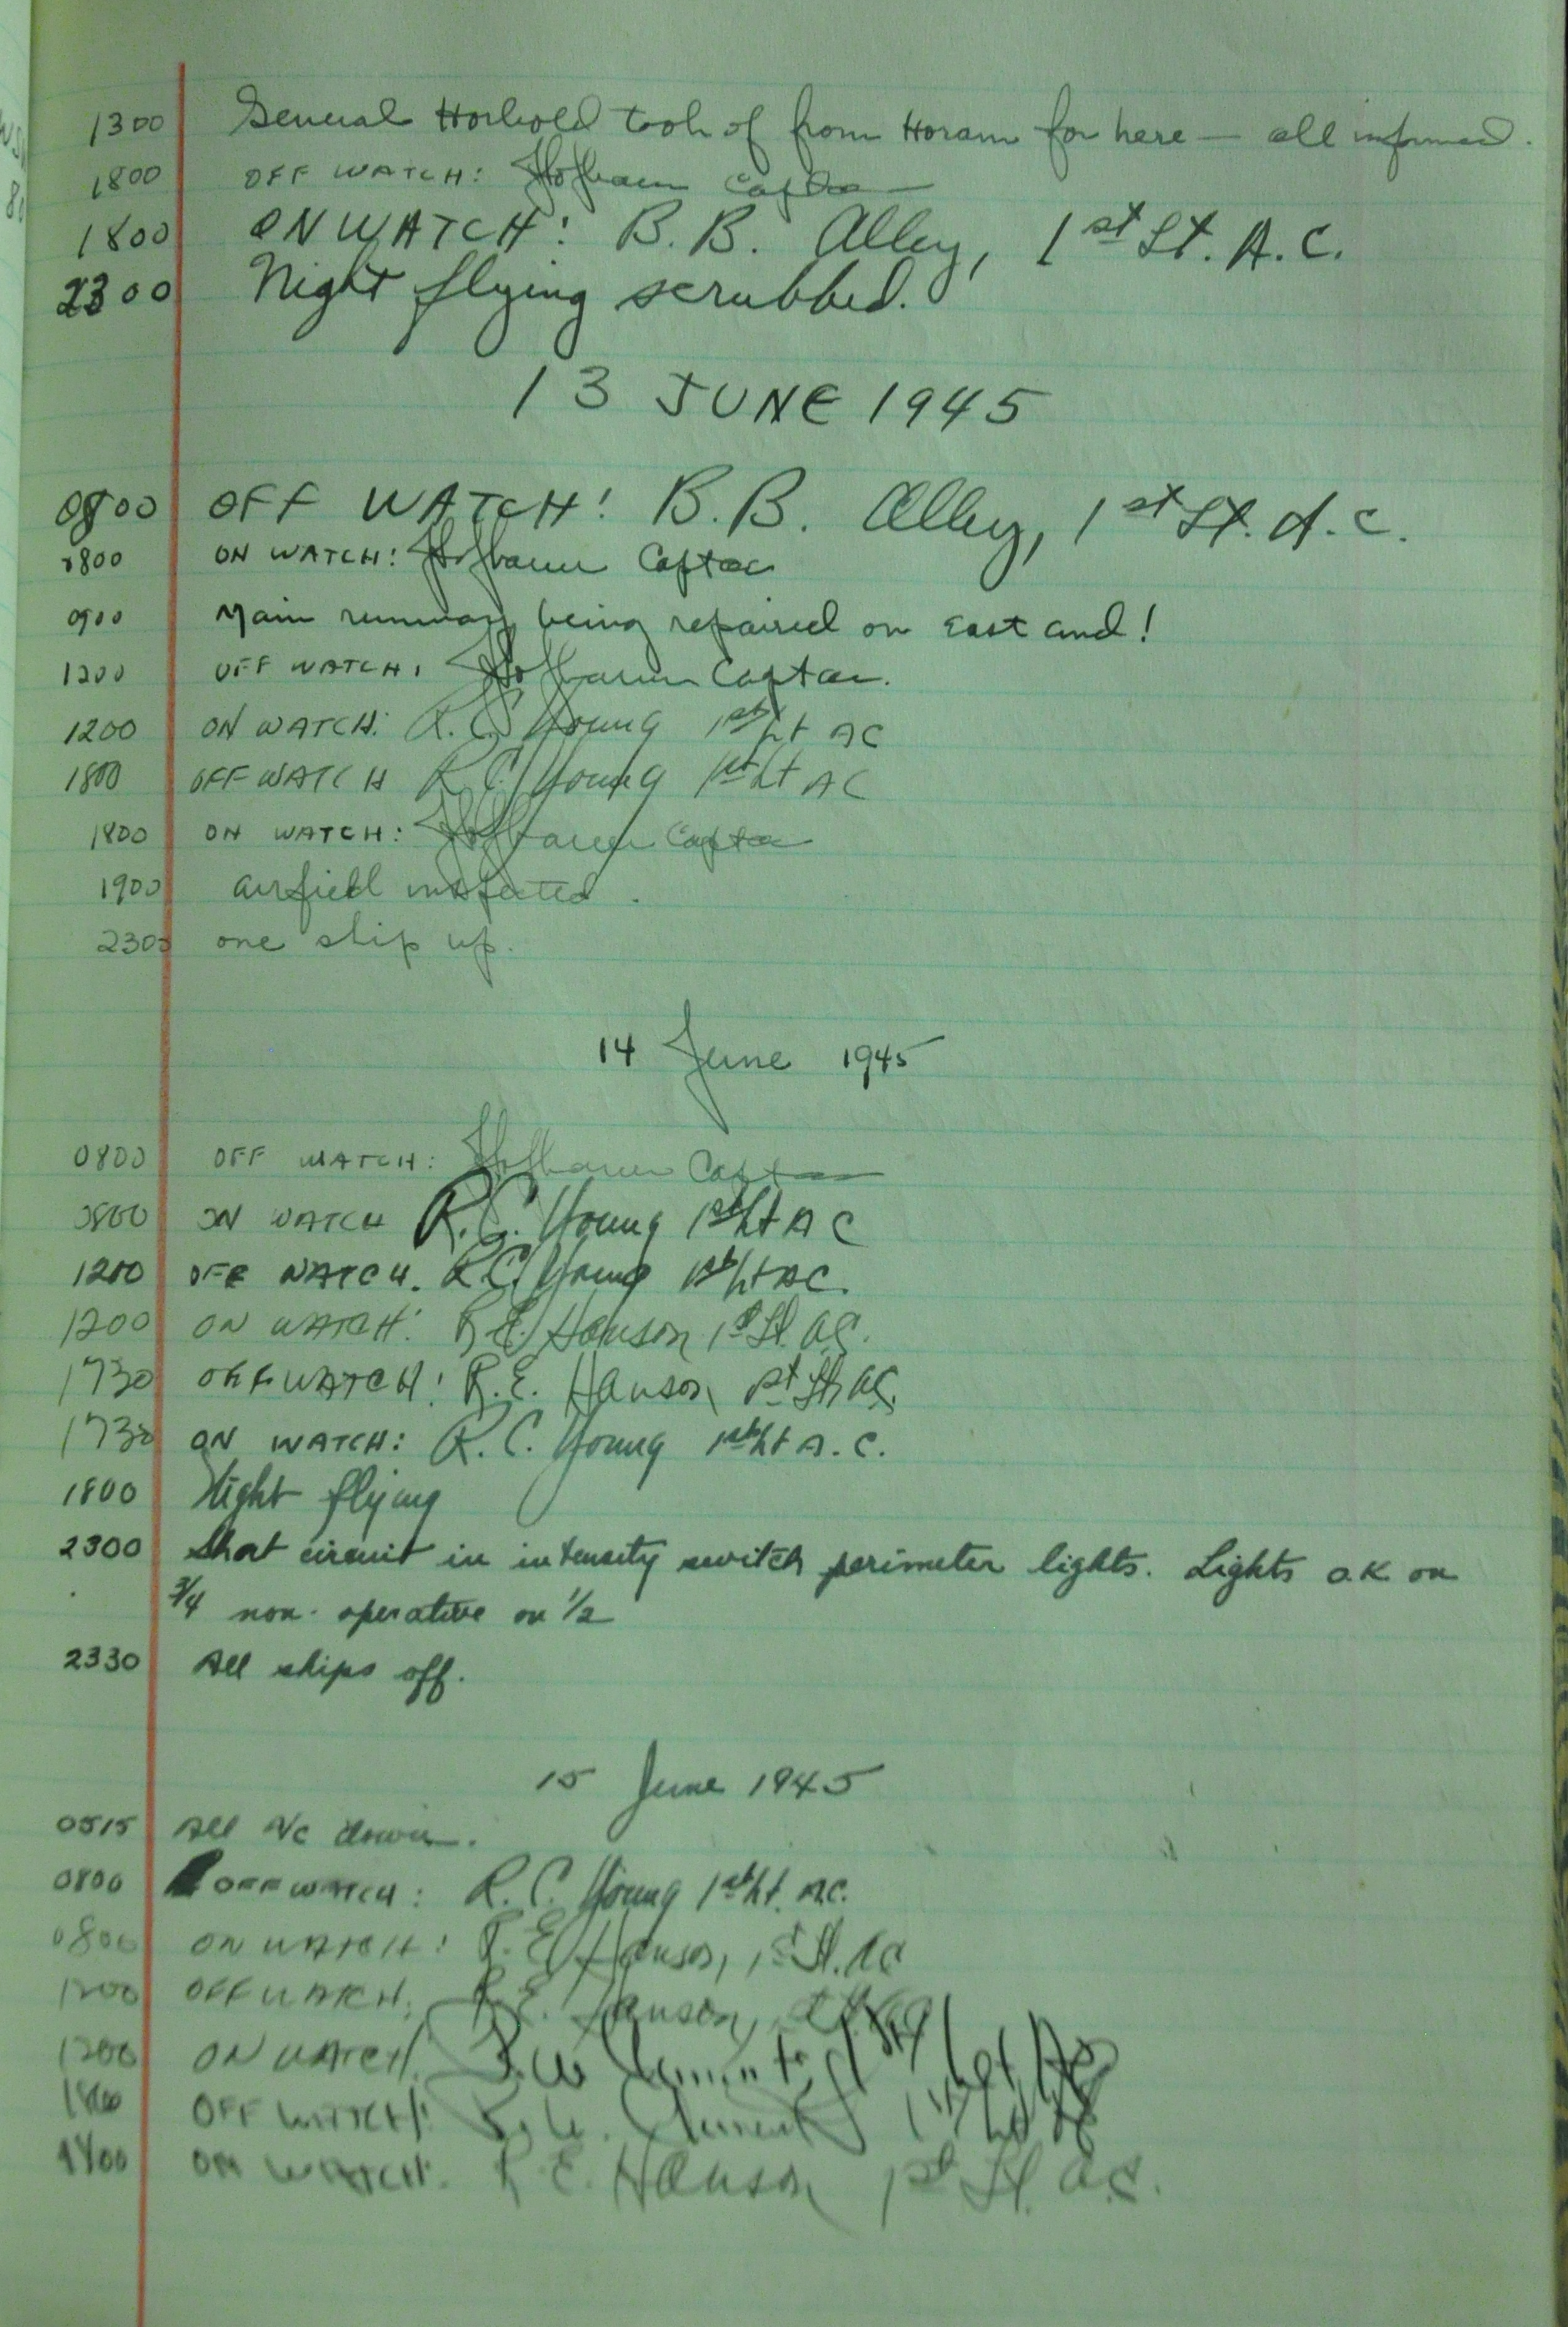 1300 General Harbold took of from Horam for here — all informed.
1800 OFF WATCH: Hofbauer Capt ac
1800 ON WATCH: B.B. Alley, 1st Lt. A.C.
2300 Night flying scrubbed.
13 JUNE 1945
0800 OFF WATCH: B.B. Alley, 1st Lt. A.C.
0800 ON WATCH: Hofbauer Capt ac
0900 Main runway being repaired on east end!
1200 OFF WATCH: Hofbauer Capt ac.
1200 ON WATCH: R.C. Young 1st Lt AC
1800 OFF WATCH R.C. Young 1st Lt AC
1800 ON WATCH: Hofbauer Capt ac
1900 airfield inspected.
2300 one ship up.
14 June 1945
0800 OFF WATCH: Hofbauer Capt ac
0800 ON WATCH R.C. Young 1st Lt AC
1200 OFF WATCH. R.C. Young 1st Lt AC.
1200 ON WATCH: R.E. Hanson 1st Lt. AC.
1730 OFF WATCH: R.E. Hanson 1st Lt. AC.
1730 ON WATCH: R.C. Young 1st Lt A.C.
1800 Night flying
2300 Short circuit in intensity switch perimeter lights. Lights O.K on
3/4 non-operative on 1/2
2330 All ships off.
15 June 1945
0515 All A/c down.
0800 OFF WATCH: R.C. Young 1st Lt. AC.
0800 ON WATCH: R.E. Hanson, 1st Lt. AC
1200 OFF WATCH: R.E. Hanson, 1st Lt AC
1200 ON WATCH: 1st Lt AC
1800 OFF WATCH: 1st Lt AC
ON WATCH: R.E. Hanson 1st Lt. A.C.